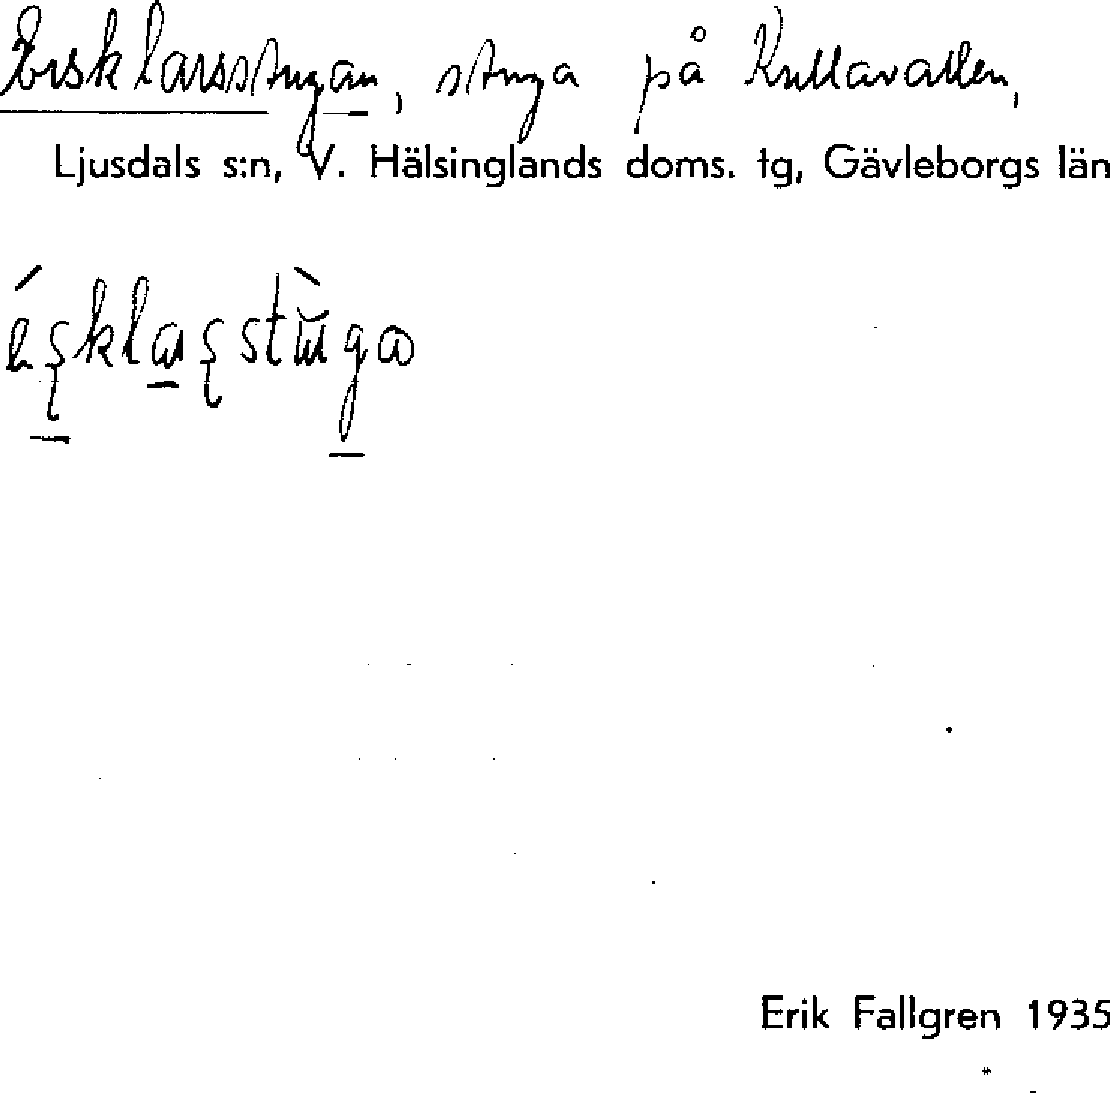 Ersklarsstugan, stuga på Kullavallen,
Ljusdals s:n, V. Hälsinglands doms. tg, Gävleborgs län
Erik Fallgren 1935